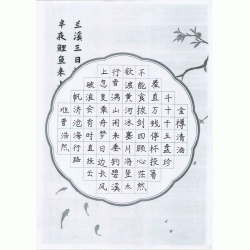 兰溪三日
半夜鲤鱼来
金樽清酒
斗十千玉盘珍
羞直万钱停杯投箸
不能食拔剑四顾心茫然
欲渡黄河冰塞川将登太
行雪满山闲来垂钓碧溪
上忽复乘舟梦日边长风
破浪会有时直挂云
帆济沧海行路
难曹浩然